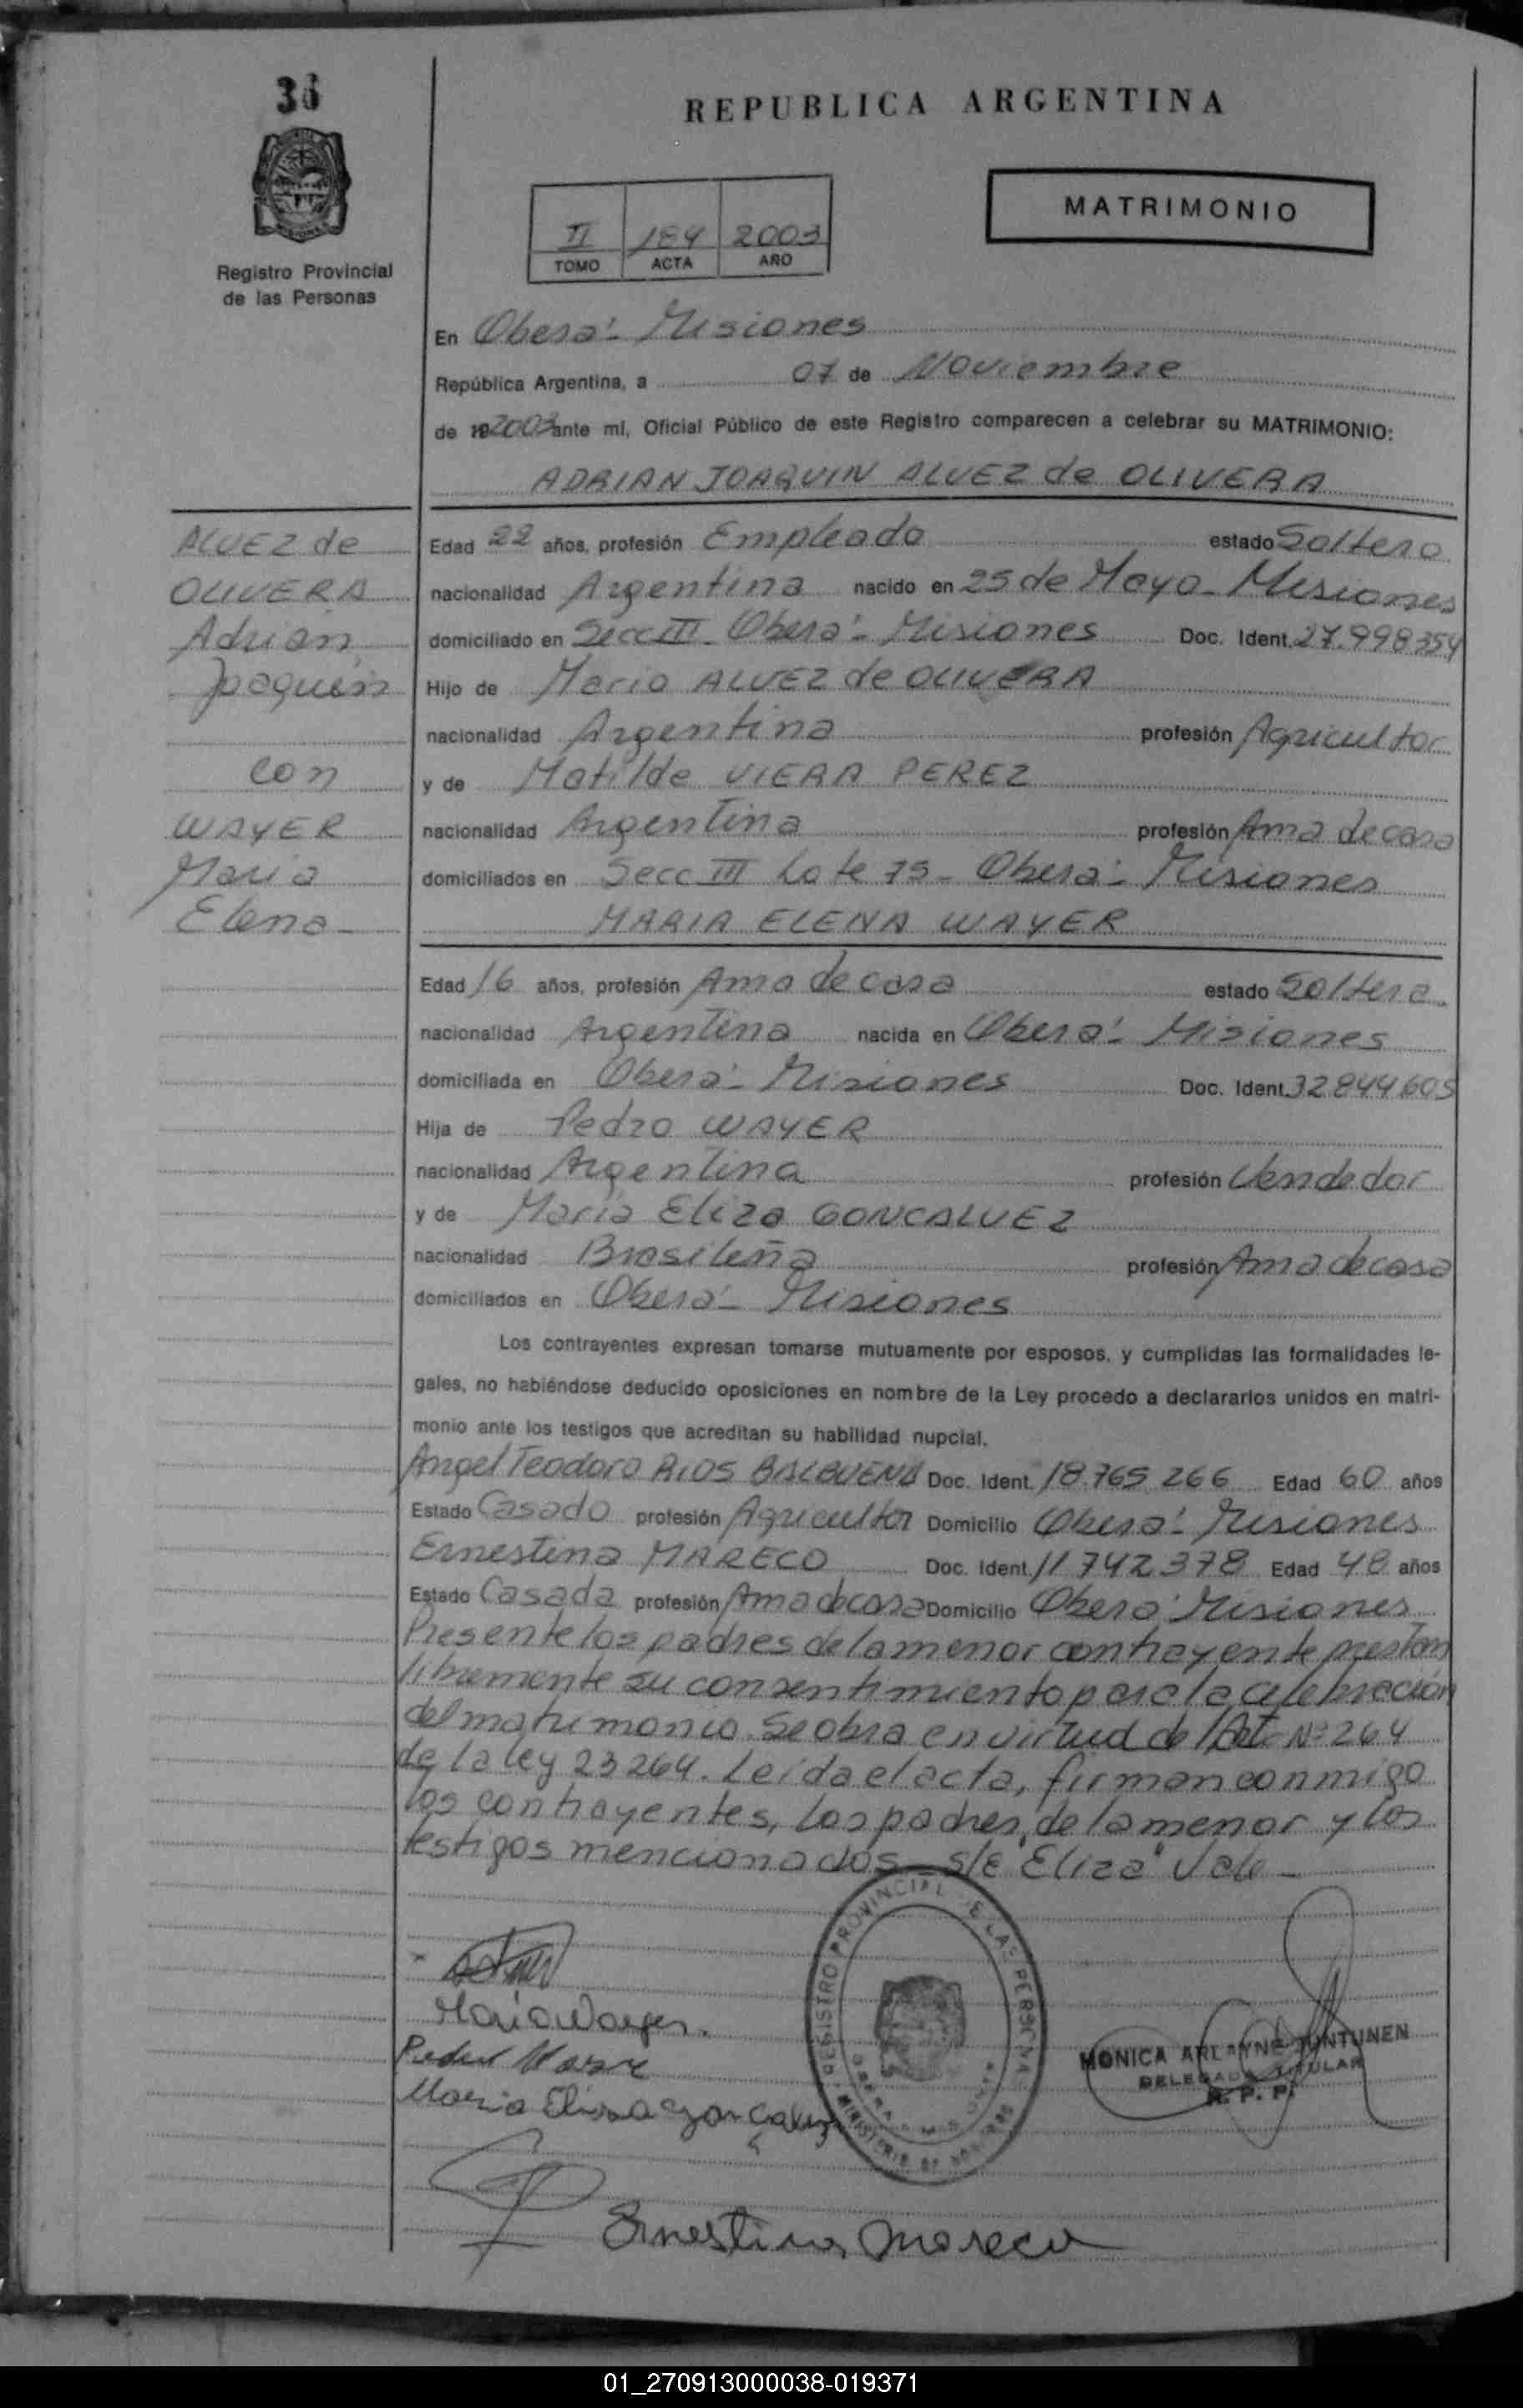 36
REPUBLICA ARGENTINA
MATRIMONIO
II 184 2003
TOMO ACTA AÑO
Registro Provincial
de las Personas
En Oberá - Misiones
República Argentina, a 07 de Noviembre
de 192003 ante mí, Oficial Público de este Registro comparecen a celebrar su MATRIMONIO:
ADRIAN JOAQUIN ALVEZ de OLIVERA
ALVEZ de
OLIVERA
Adrian
Joaquin
con
WAYER
Maria
Elena -
Edad 22 años, profesión Empleado estado Soltero
nacionalidad Argentina nacido en 25 de Mayo - Misiones
domiciliado en Secc III - Oberá - Misiones Doc. Ident. 27.998354
Hijo de Mario ALVEZ de OLIVERA
nacionalidad Argentina profesión Agricultor
y de Matilde VIERA PEREZ
nacionalidad Argentina profesión Ama de casa
domiciliados en Secc III Lote 75 - Oberá - Misiones
MARIA ELENA WAYER
Edad 16 años, profesión Ama de casa estado Soltera
nacionalidad Argentina nacida en Oberá - Misiones
domiciliada en Oberá - Misiones Doc. Ident. 32.844.605
Hija de Pedro WAYER
nacionalidad Argentina profesión Vendedor
y de María Eliza GONCALVEZ
nacionalidad Brasileña profesión Ama de casa
domiciliados en Oberá - Misiones
Los contrayentes expresan tomarse mutuamente por esposos, y cumplidas las formalidades le-
gales, no habiéndose deducido oposiciones en nombre de la Ley procedo a declararlos unidos en matri-
monio ante los testigos que acreditan su habilidad nupcial.
Angel Teodoro RIOS BALBUENA Doc. Ident. 18.765.266 Edad 60 años
Estado Casado profesión Agricultor Domicilio Oberá - Misiones
Ernestina MARECO Doc. Ident. 11.742.378 Edad 48 años
Estado Casada profesión Ama de casa Domicilio Oberá Misiones
Presente los padres de la menor contrayente prestan
libremente su consentimiento para la celebración
del matrimonio. Se obra en virtud del Art. Nº 264
de la ley 23264. Leída el acta, firman conmigo
los contrayentes, los padres de la menor y los
testigos mencionados - s/e "Eliza" Vale -
Maria Wayer.
Maria Elisa Gonçalvez
REGISTRO PROVINCIAL DE LAS PERSONAS
MONICA ARLAYNE JUNTUNEN
DELEGADA TITULAR
R. P. P.
Ernestina Mareco
01_270913000038-019371